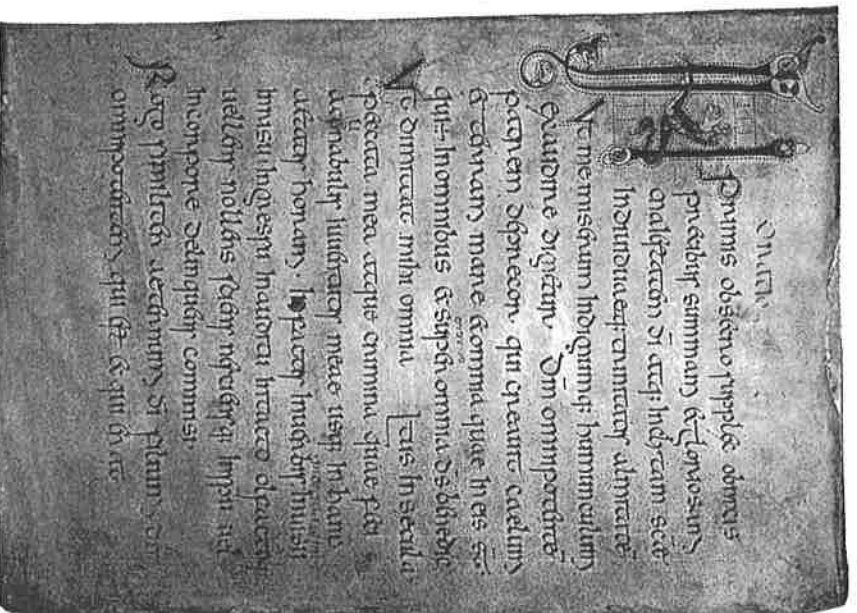 Oratio
In primis obsecro supplex obnixis
precibus summam & gloriosam
maiestatem dī atq: inclytam scae
indiuiduaeq: trinitatis almitatē
Ut me miserum indignumq: homunculum
exaudire digneris. Dm̄ omnipotentē
patrem deprecor. qui creauit caelum
& terram mare & omnia quae in eis st̄.
qui est in omnibus & super omnia ds benedic
Ut dimittat mihi omnia tus in secula
peccata mea atque crimina quae feci
a cunabulis iuuentutis meae usq: in hanc
aetatis horam. In factis in uerbis in uisu
in risu in gressu in auditu in tactu olfactu
uellens nollens sciens nesciensq: in spu uel
in corpore delinquens commisi.
Rogo simul et aeternum dī filium dm̄
omnipotentem qui est & qui erat